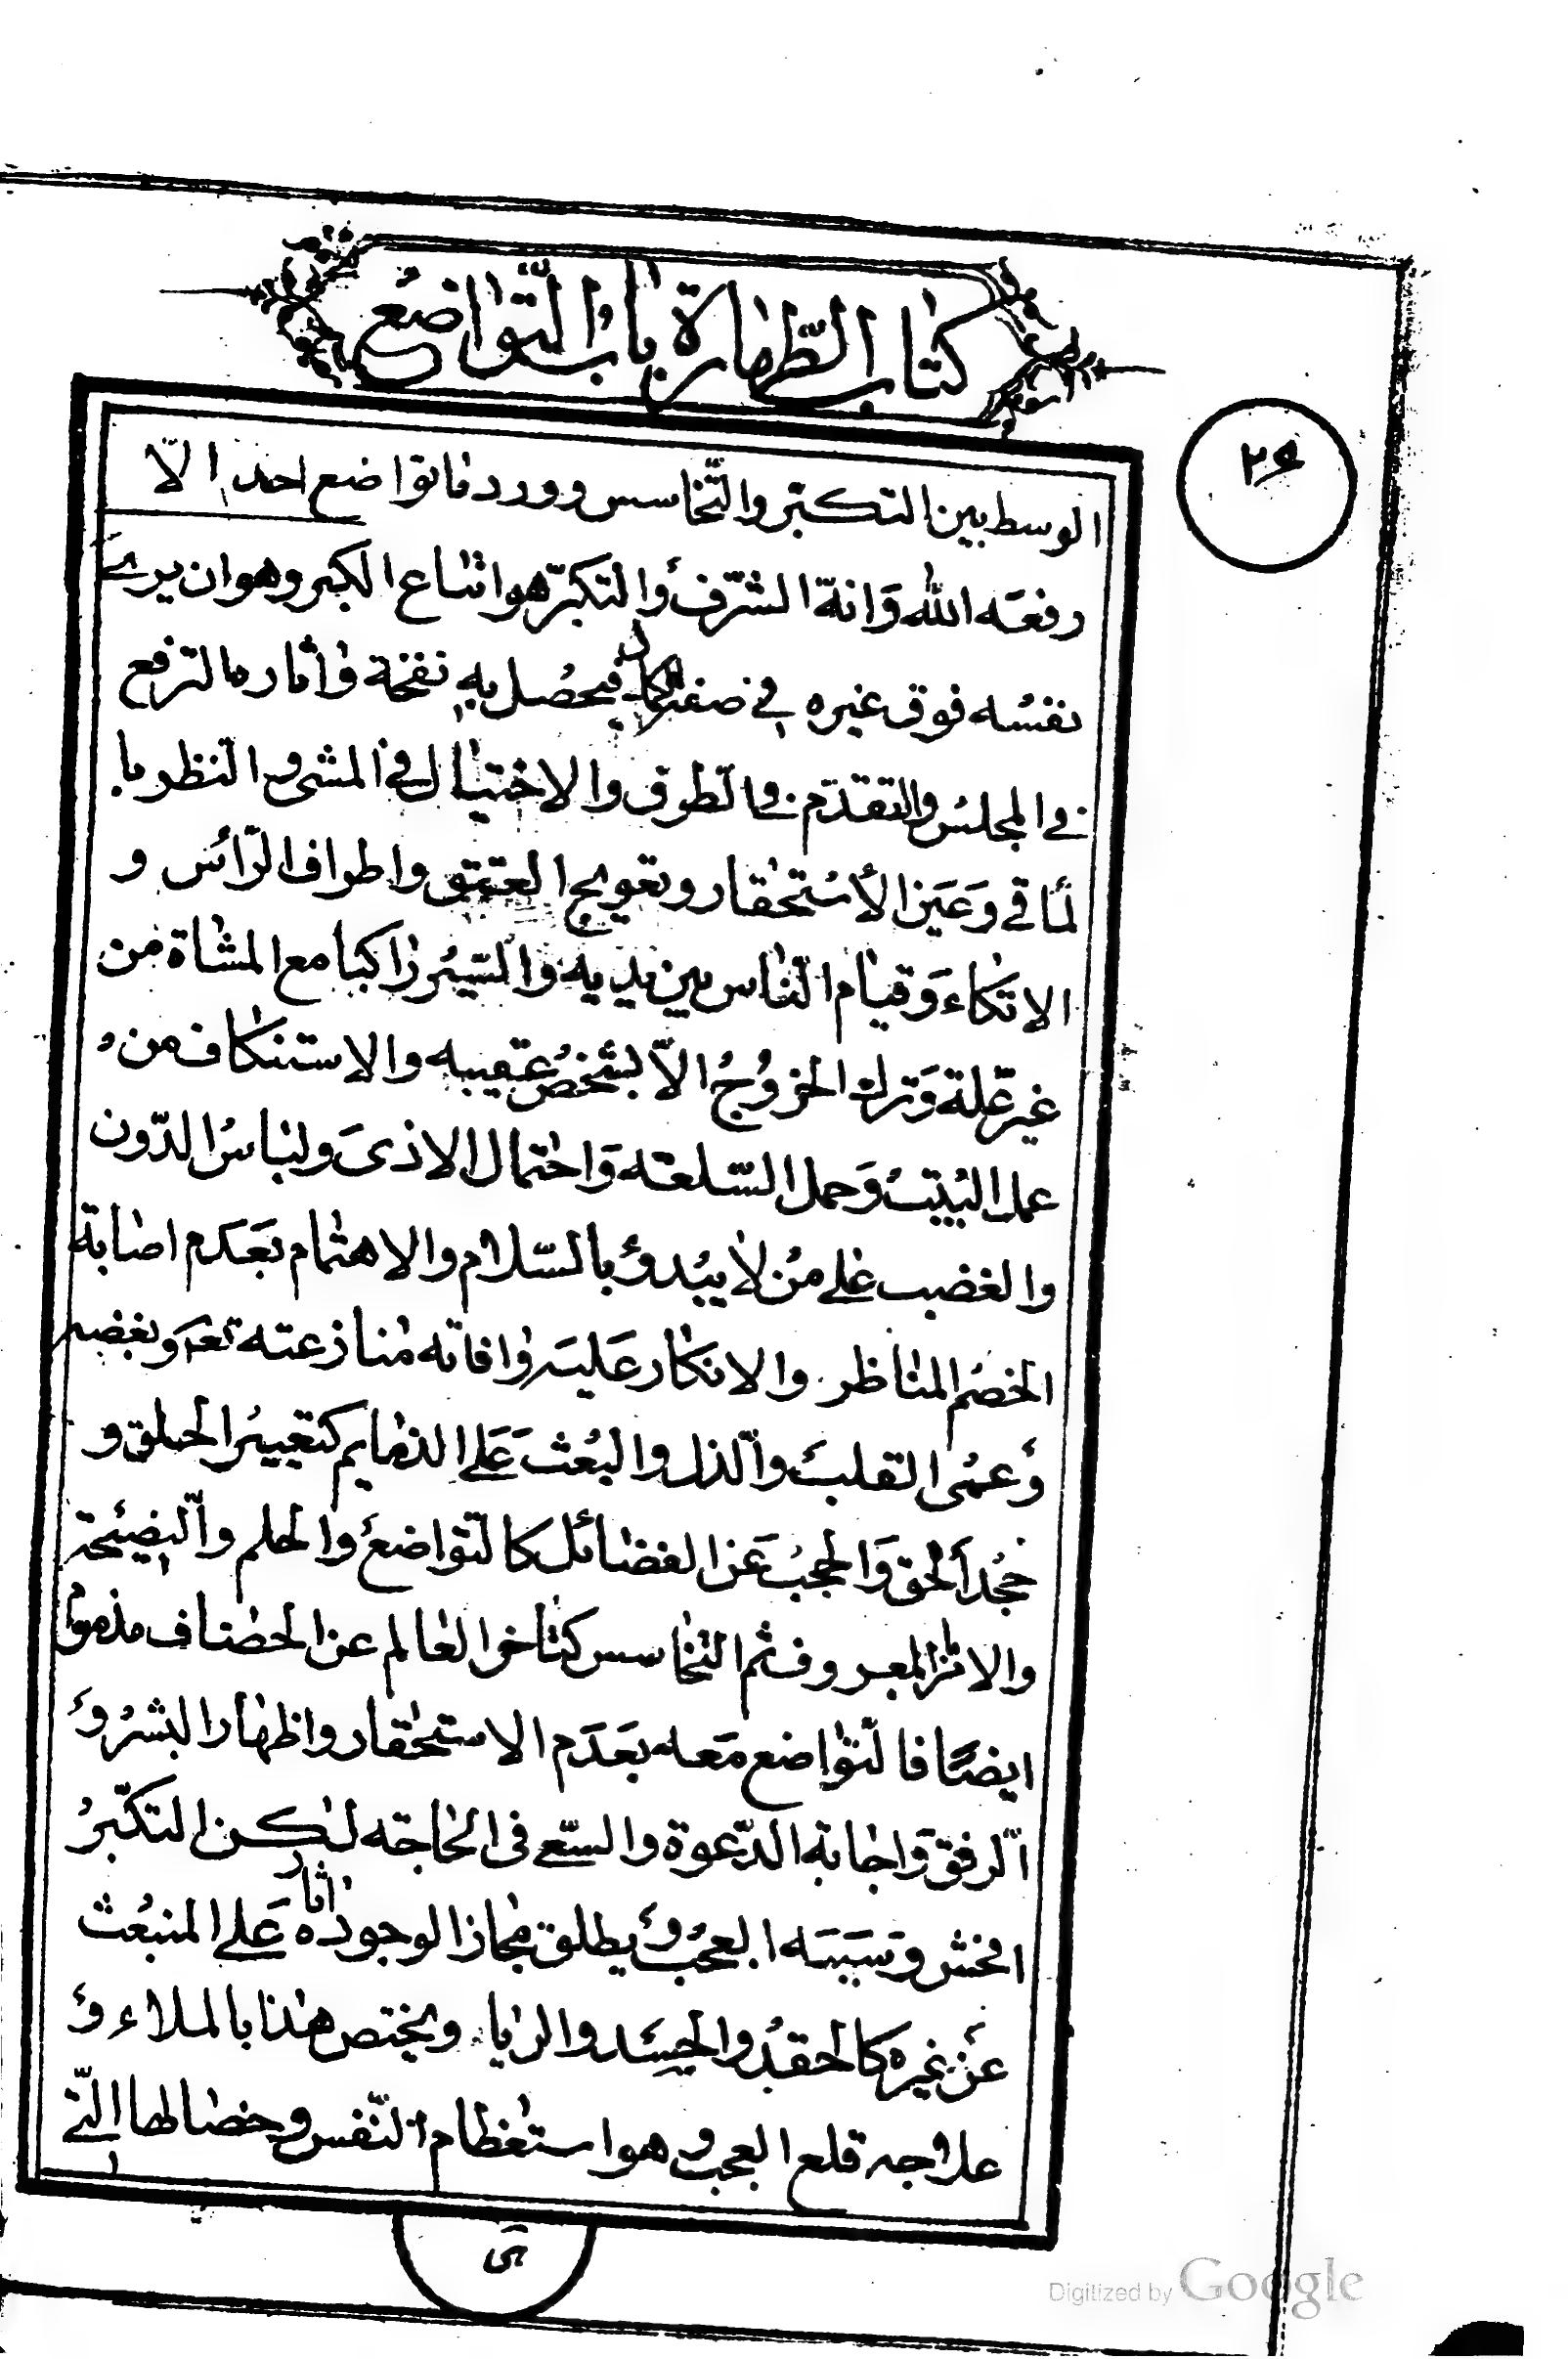 كتاب الطهارة باب التواضع
۲۶
الوسط بين التكبر والتخاسس وورد ما تواضع احد الا
رفعه الله وانه الشرف والتكبر هو اتباع الكبر وهو ان يرى
نفسه فوق غيره في صفة الكمال فيحصل به نفخة واثاره الترفع
في المجلس والتقدم في الطرق والاختيال في المشي والنظر با
لماقي وعين الاستحقار وتعويج العنق واطراف الرأس و
الاتكاء وقيام الناس بين يديه والسير راكبا مع المشاة من
غير علة وترك الخروج الا بشخص عقيبه والاستنكاف من
عمل البيت وحمل السلعة واحتمال الاذى ولباس الدون
والغضب على من لا يبدؤ بالسلام والاهتمام بعدم اصابة
الخصم المناظر والانكار عليه وافاته منازعته تعه وبغضه
وعمى القلب والذل والبعث على الذمايم كتغيير الخلق و
جحد الحق والحجب عن الفضائل كالتواضع والحلم والنصيحة
والامر المعروف ثم التخاسس كتاخر العالم عن الخصاف مذموم
ايضا فالتواضع معه بعدم الاستحقار واظهار البشر و
الرفق واجابة الدعوة والسعي في الحاجة لكن التكبر
افحش وسببه العجب ويطلق مجازا لوجود اثاره على المنبعث
عن غيره كالحقد والحسد والريا ويختص هذا بالملاء و
علاجه قلع العجب وهو استعظام النفس وخصالها التي
هى
Digitized by Google